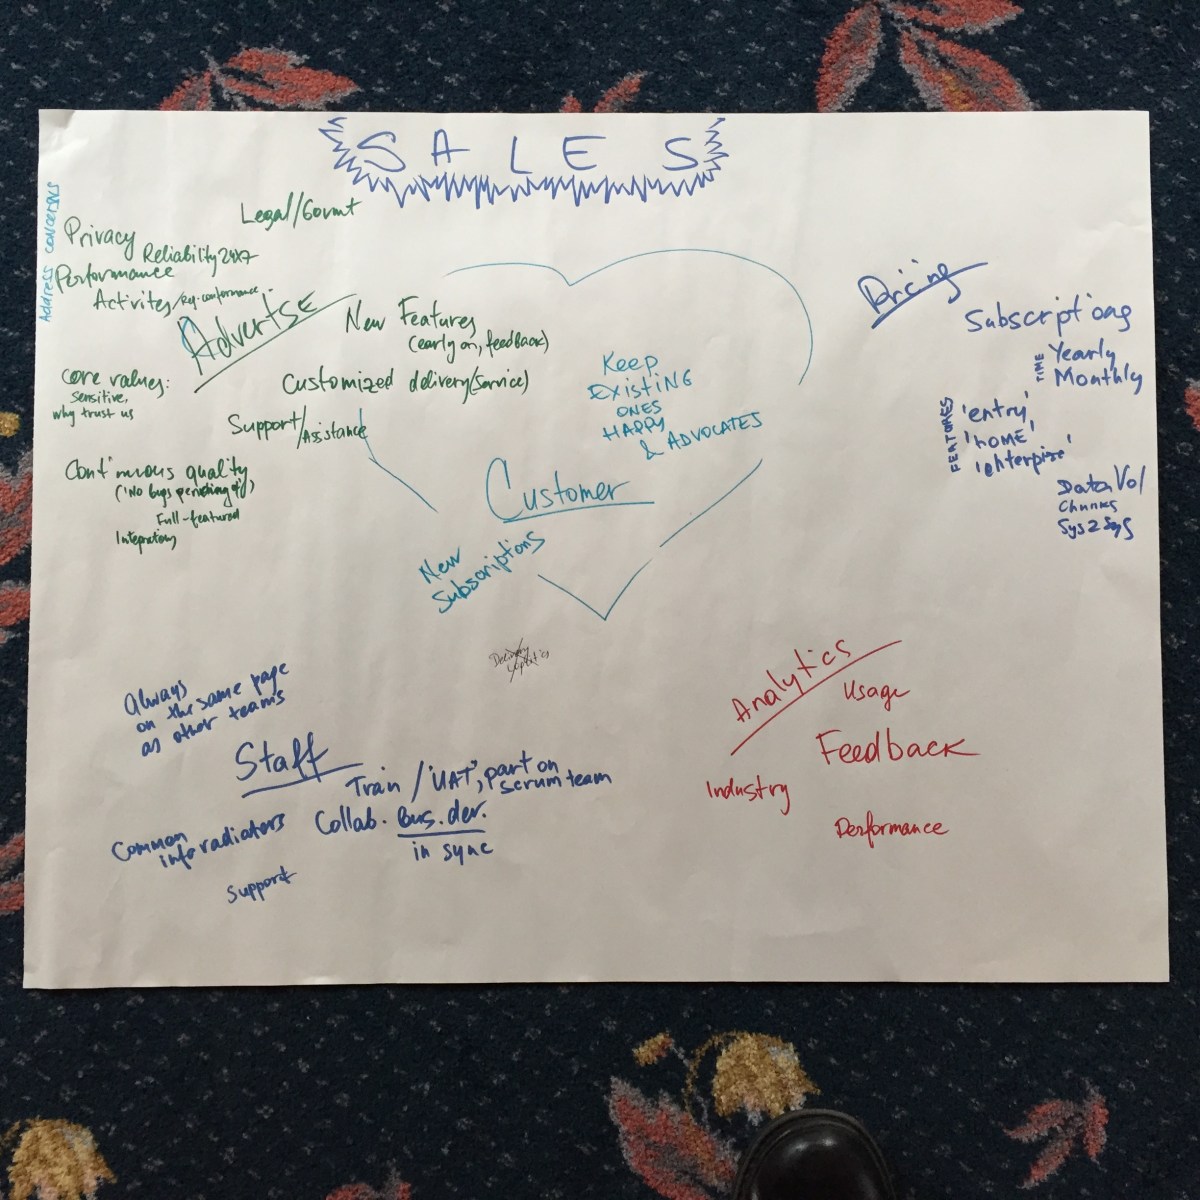 SALES
Address concerns
Legal/Govmt
Privacy
Reliability 24x7
Performance
Activites/
Advertse
New Features
(early on, feedback)
Customized delivery (service)
Support/Assistance
core values:
sensitive,
why trust us
Continuous quality
Full-featured
Keep
Existing
ones
Happy
& Advocates
Customer
New
Subscriptions
Pricing
Subscriptions
Time
Yearly
Monthly
Features
'entry'
'home'
Data Vol
Chunks
Sys2Sys
Always
on the same page
as other teams
Staff
Train / 'UAT', part on
scrum team
Collab. Bus. dev.
in sync
Common
info radiators
Support
Analytics
Usage
Feedback
Industry
Performance